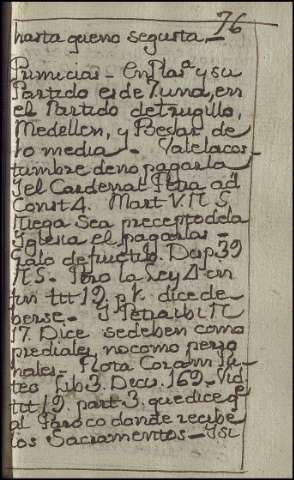 76
hasta que no se gusta —
Primicias — En Plasª y su
Partido es de 7. una, en
el Partido de trugillo,
Medellen, y Poesas de
10 media — Vale la cos
tumbre de no pagarla
Jel Cardenal Petra ad
Const 4. Mart V. N 5
Niega sea precepto de la
Iglesia el pagarlas —
Galo de fructib. Disp. 39
N 5 — Pero la Ley 4 in
fin ttt 19. p. 1. dice de
berse — J Petra ibi N
17. Dice se deben como
prediales, no como perso
nales — Rota Coram Ju
teo Lib 3. Decis. 169 — Vid
ttt 19. part. 3, que dice q^e
al Paroco donde recibe
los Sacramentos — Jsi